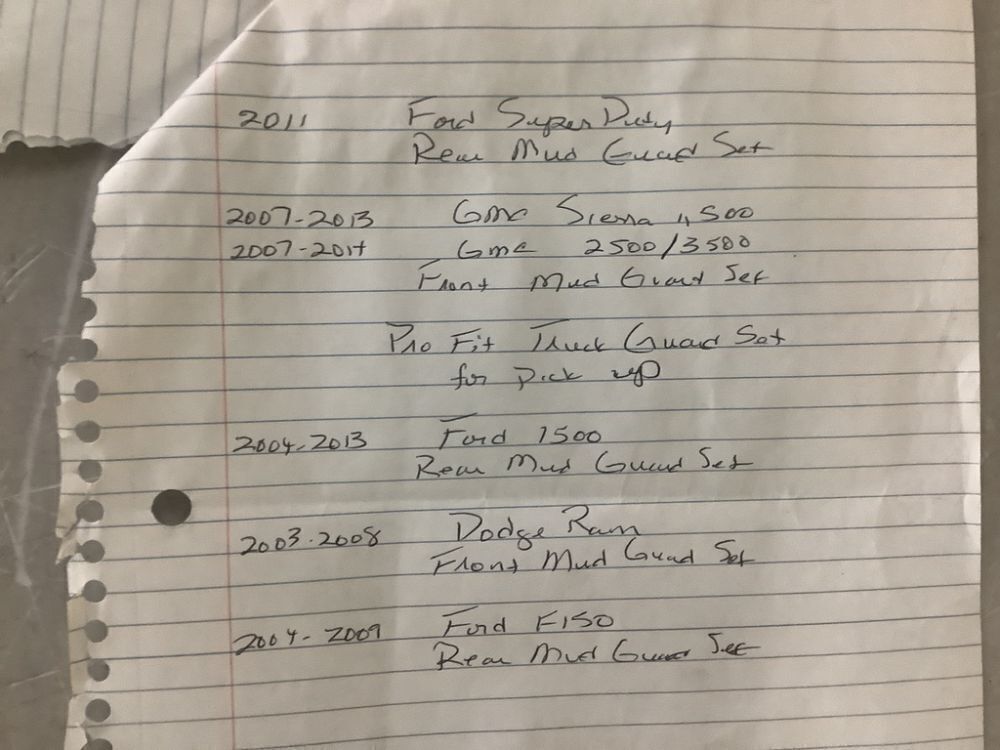 2011 Ford Super Duty
Rear Mud Guard Set
2007-2013 GMC Sierra 1,500
2007-2014 GMC 2500/3500
Front Mud Guard Set
Pro Fit Truck Guard Set
for Pick up
2004-2013 Ford 1500
Rear Mud Guard Set
2003-2008 Dodge Ram
Front Mud Guard Set
2004-2009 Ford F150
Rear Mud Guard Set